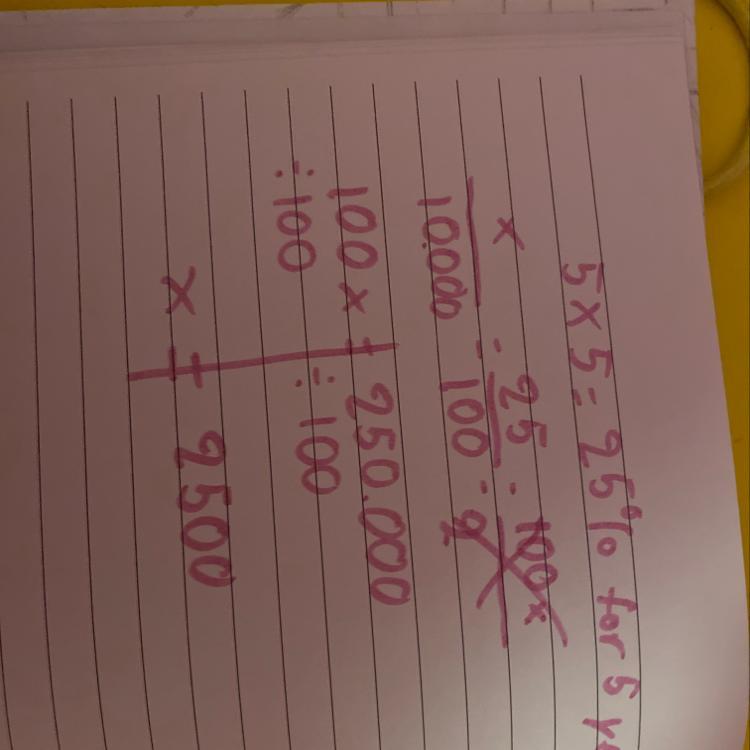 5 x 5 = 25% for 5
x/10.000 = 25/100 =
100x = 250.000
÷100 ÷100
x = 2500